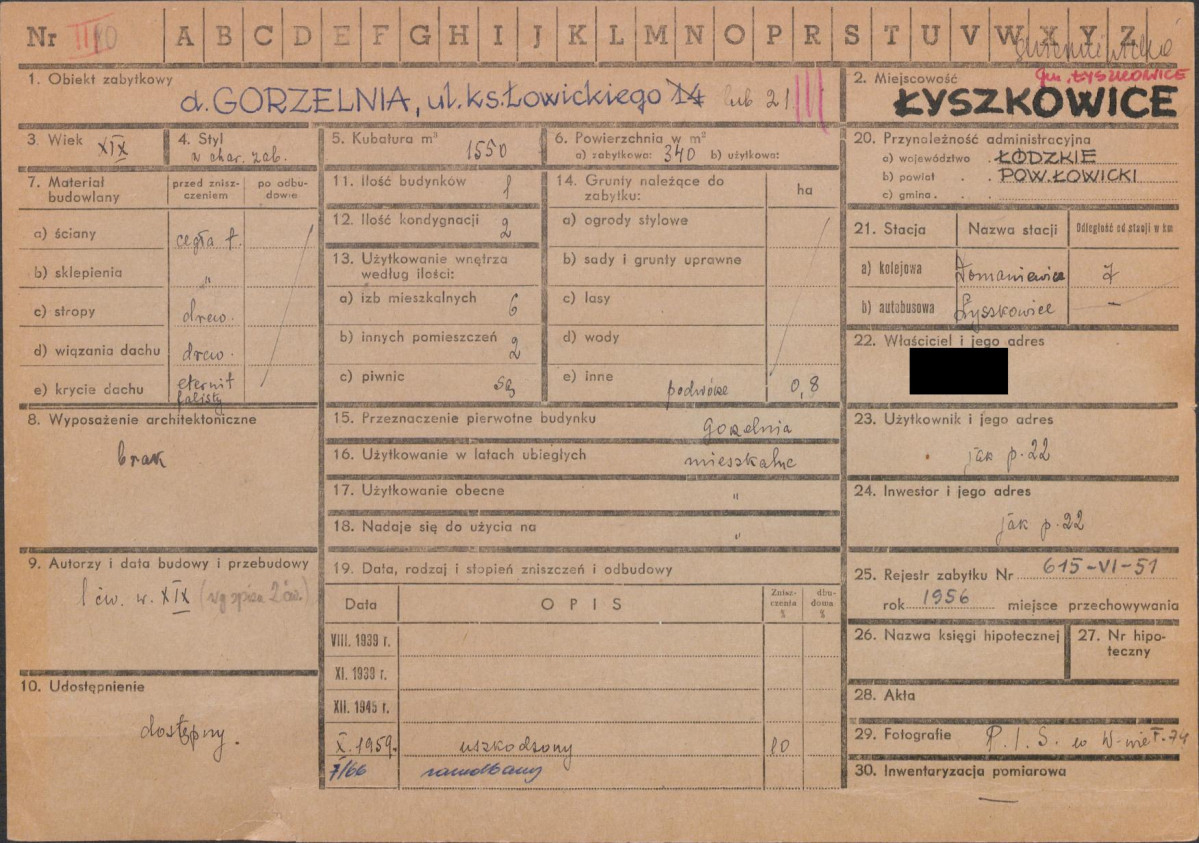 Nr III
A B C D E F G H I J K L M N O P R S T U V W X Y Z
1. Obiekt zabytkowy
d. GORZELNIA, ul. ks. Łowickiego 14 lub 21
2. Miejscowość
gm. ŁYSZKOWICE
ŁYSZKOWICE
3. Wiek XIX
4. Styl
w char. zab.
5. Kubatura m³ 1550
6. Powierzchnia w m²
a) zabytkowa: 340 b) użytkowa:
7. Materiał budowlany
przed zniszczeniem
po odbudowie
a) ściany cegła t.
b) sklepienia "
c) stropy drew.
d) wiązania dachu drew.
e) krycie dachu eternit falisty
8. Wyposażenie architektoniczne
brak
9. Autorzy i data budowy i przebudowy
1 ćw. w. XIX (wg spisu 2 ćw.)
10. Udostępnienie
dostępny.
11. Ilość budynków 1
12. Ilość kondygnacji 2
13. Użytkowanie wnętrza według ilości:
a) izb mieszkalnych 6
b) innych pomieszczeń 2
c) piwnic są
14. Grunty należące do zabytku:
ha
a) ogrody stylowe
b) sady i grunty uprawne
c) lasy
d) wody
e) inne podwórze 0,8
15. Przeznaczenie pierwotne budynku gorzelnia
16. Użytkowanie w latach ubiegłych mieszkalne
17. Użytkowanie obecne "
18. Nadaje się do użycia na "
19. Data, rodzaj i stopień zniszczeń i odbudowy
Data
OPIS
Zniszczenia %
dbudoma %
VIII. 1939 r.
XI. 1939 r.
XII. 1945 r.
X. 1959. uszkodzony 80
7/66 zaniedbany
20. Przynależność administracyjna
a) województwo . ŁÓDZKIE
b) powiat . . POW. ŁOWICKI
c) gmina . . .
21. Stacja
Nazwa stacji
Odległość od stacji w km
a) kolejowa Domaniewice 7
b) autobusowa Łyszkowice —
22. Właściciel i jego adres
23. Użytkownik i jego adres
jak p. 22
24. Inwestor i jego adres
jak p. 22
25. Rejestr zabytku Nr 615-VI-51
rok 1956 miejsce przechowywania
26. Nazwa księgi hipotecznej
27. Nr hipoteczny
28. Akta
29. Fotografie P. I. S. w W-wie F. 74
30. Inwentaryzacja pomiarowa
—